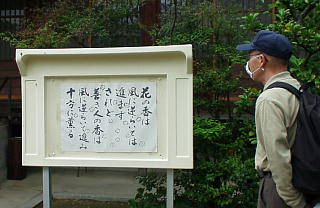 花の香は
風に逆らいては
進まず
されど
善き人の香は
風に逆らいて進み
十方に薫る